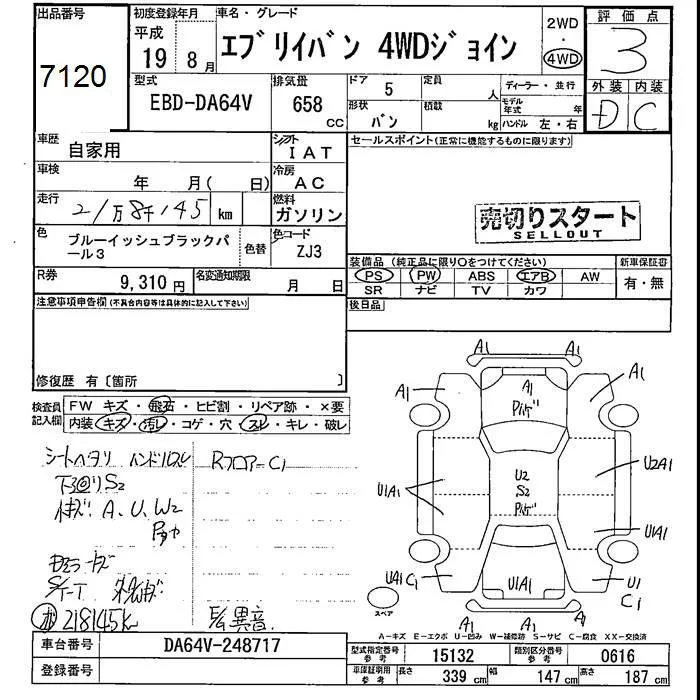 出品番号
7120
初度登録年月
平成
19年8月
車名・グレード
エブリイバン 4WDジョイン
2WD
・
4WD
評価点
3
外装 内装
D C
型式
EBD-DA64V
排気量
658
CC
ドア 5
定員 人
形状 バン
積載 kg
ディーラー・並行
モデル年式 年
ハンドル 左・右
車歴
自家用
シフト
IAT
車検
年 月( 日)
冷房
AC
走行
21万8千145 km
燃料
ガソリン
色
ブルーイッシュブラックパール3
色替
色コード
ZJ3
R券
9,310円
名変通知期限
月 日
セールスポイント(正常に機能するものに限ります)
売切りスタート
SELLOUT
装備品(純正品に限り○をつけてください)
新車保証書
PS PW ABS エアB AW
SR ナビ TV カワ
有・無
後日品
注意事項申告欄(不具合内容等は具体的に記入して下さい)
修復歴 有〔箇所 〕
検査員記入欄
FW キズ・飛石・ヒビ割・リペア跡・×要
内装 キズ・汚レ・コゲ・穴・スレ・キレ・破レ
シートヘタリ ハンドルスレ
Rフロアー C1
下回り S2
A、U、W2
218145k
異音
A1 A1
A1 A1 A1
U2
S2
U1A1
U2A1
U1A1
U1A1
U1
C1
C1
A1 A1
A1
スペア
A-キズ E-エクボ U-凹み W-補修跡 S-サビ C-腐食 XX-交換済
車台番号
DA64V-248717
登録番号
型式指定番号
参考
15132
類別区分番号
参考
0616
車庫証明用
参考
長さ 339 cm
幅 147 cm
高さ 187 cm